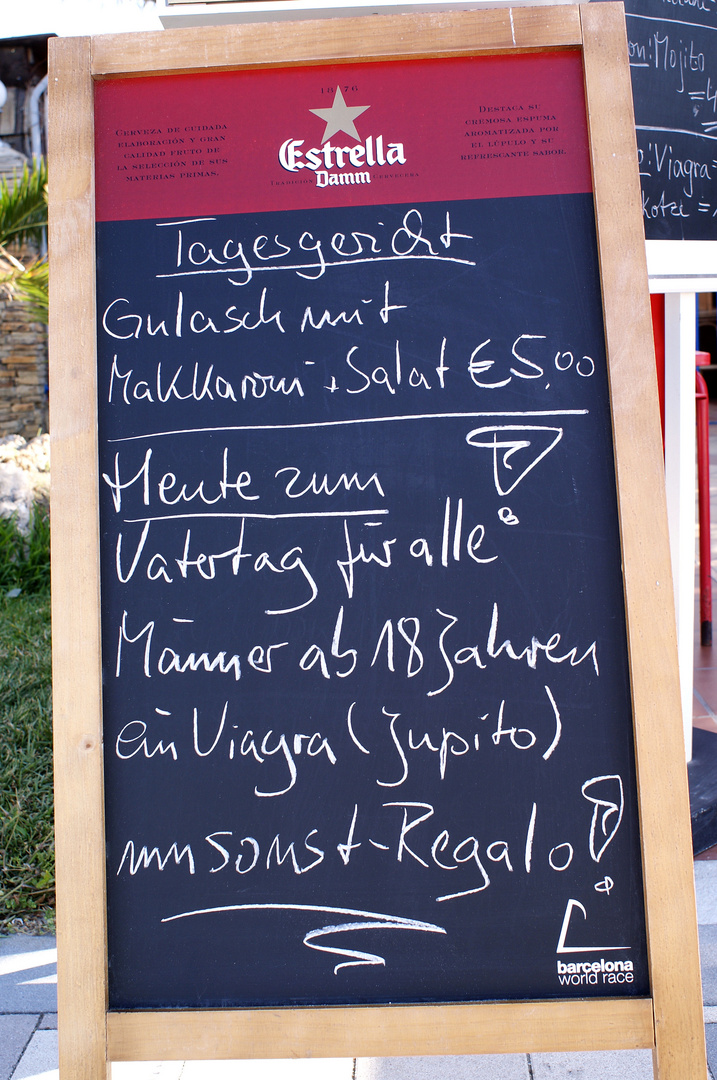 1876
CERVEZA DE CUIDADA
ELABORACIÓN Y GRAN
CALIDAD FRUTO DE
LA SELECCIÓN DE SUS
MATERIAS PRIMAS.
Estrella
Damm
TRADICIÓN CERVECERA
DESTACA SU
CREMOSA ESPUMA
AROMATIZADA POR
EL LÚPULO Y SU
REFRESCANTE SABOR.
Tagesgericht
Gulasch mit
Makkaroni + Salat €5,00
Heute zum
Vatertag für alle
Männer ab 18 Jahren
ein Viagra (Jupito)
umsonst-Regalo!
barcelona
world race
Mojito
Viagra=